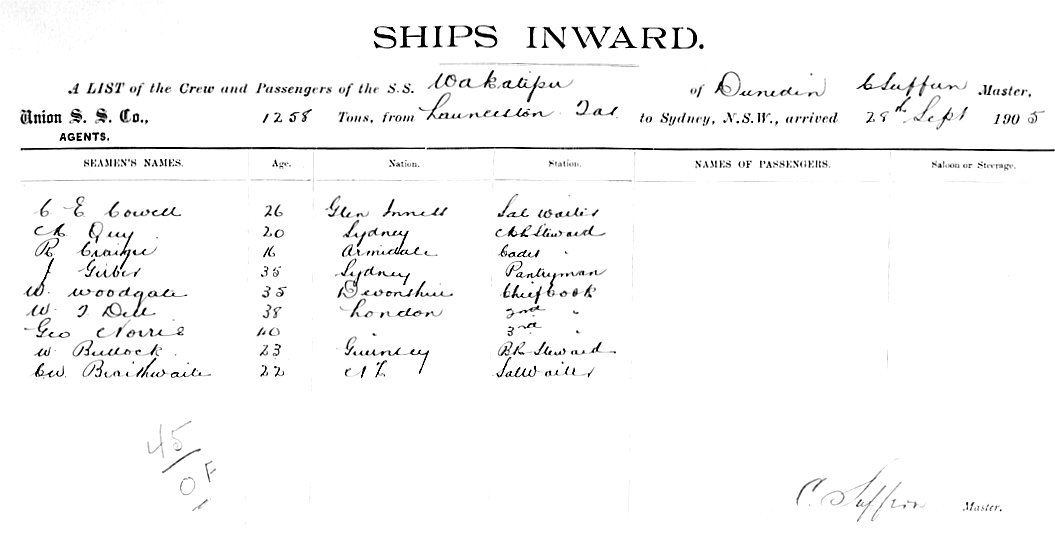 SHIPS INWARD.
A LIST of the Crew and Passengers of the S.S. Wakatipu of Dunedin C Suffern Master,
Union S. S. Co., 1258 Tons, from Launceston Tas. to Sydney, N.S.W., arrived 28th Sept 1905
AGENTS.
SEAMEN'S NAMES. Age. Nation. Station. NAMES OF PASSENGERS. Saloon or Steerage.
C E Cowell 26 Glen Inness Sal Waiter
Quy 20 Sydney Steward
R Craigie 16 Armidale Cadet "
J 35 Sydney Pantryman
W. Woodgate 35 Devonshire Chief Cook
W. J Dell 38 London 2nd "
Geo Norrie 40 " 3rd "
W Bullock 23 Guernsey Steward
CW. Braithwaite 22 NZ Sal Waiter
45
0 F
C. Suffern Master.